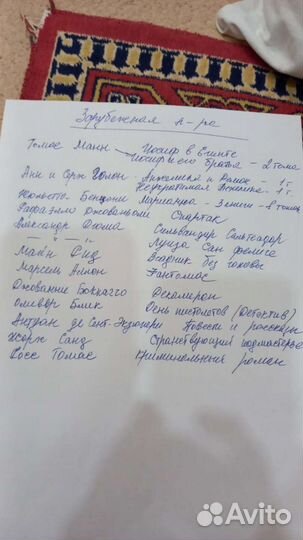 Зарубежная л-ра
Томас Манн Иосиф в Египте
Иосиф и его братья - 2 тома
Анн и Серж Голон - Анжелика и король - 1 т
Неукротимая Анжелика - 1 т
Жюльетта Бенцони Марианна - 3 книги -
Рафаэлло Джованьоли Спартак
Александр Дюма Сильвандир
— " — " — Луиза Сан Феличе
Майн Рид Всадник без головы
Марсель Аллен Фантомас
Джованни Боккаччо Декамерон
Оливер Блик Осень пистолетов (детектив)
Антуан де Сент-Экзюпери Повести и рассказы
Жорж Санд Странствующий подмастерье
Росс Томас криминальный роман
Avito